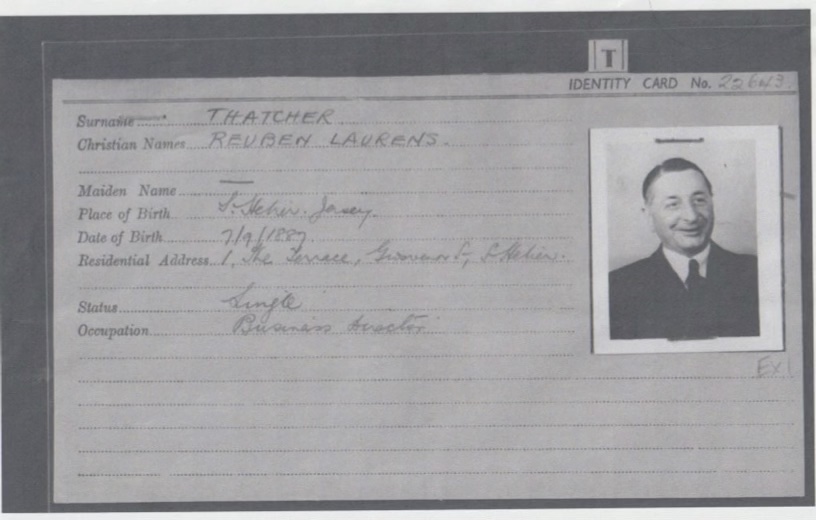 T
IDENTITY CARD No. 22643.
Surname THATCHER
Christian Names REUBEN LAURENS.
Maiden Name —
Place of Birth St. Helier. Jersey.
Date of Birth 7/9/1887.
Residential Address 1, The Terrace, Grosvenor St, St Helier.
Status Single
Occupation Business director
EX1